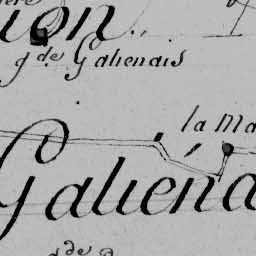 g de Galienais
la Ma
Galiéna
de